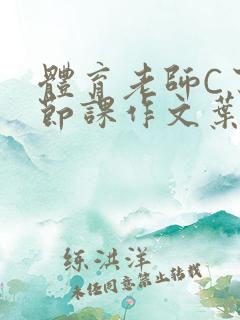 體育老師C了
節課作文葉
练洪洋
未经同意禁止转载